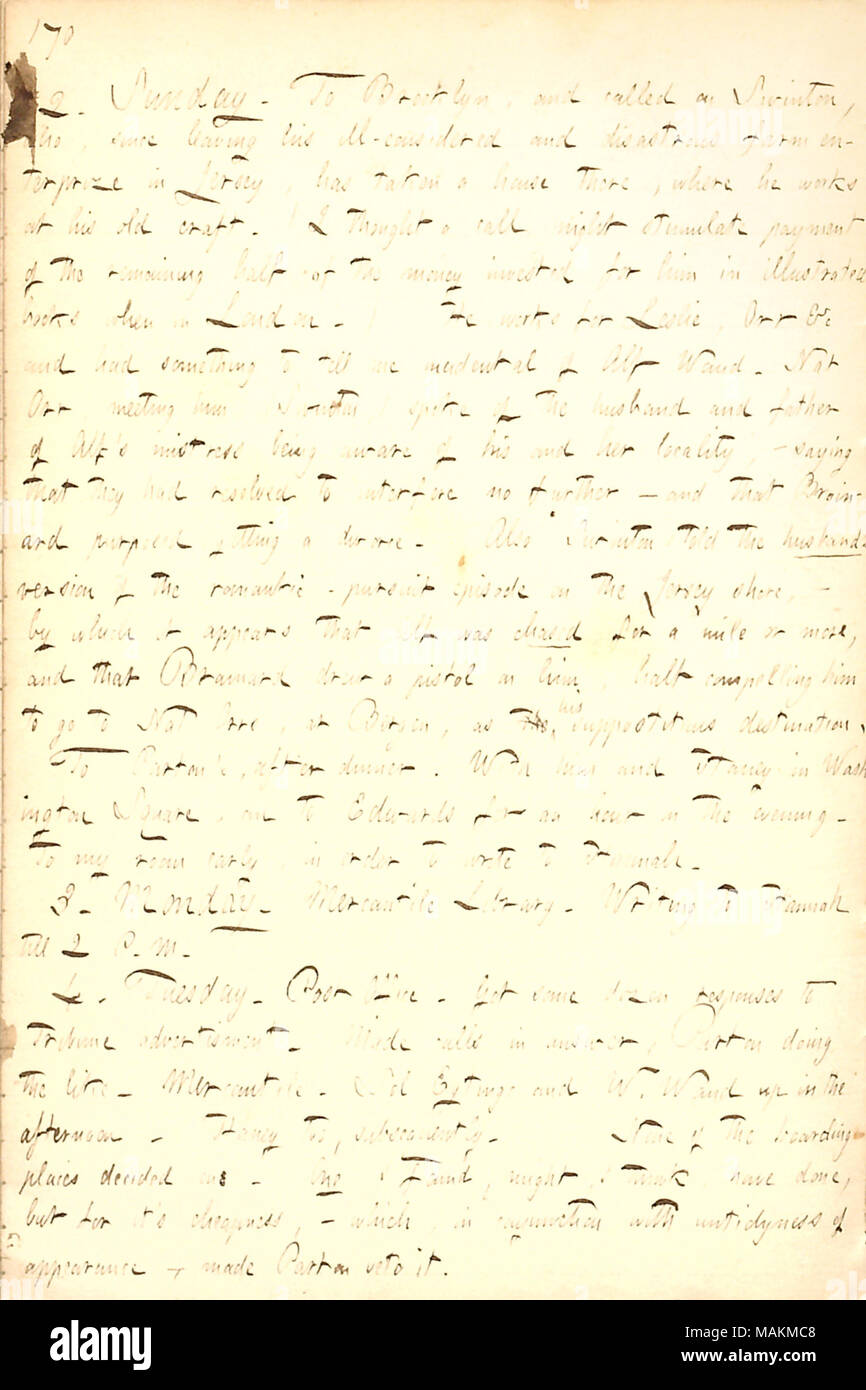 170
2. Sunday. To Brooklyn, and called on Swinton,
who, since leaving his ill-considered and disastrous farm en-
terprize in Jersey, has taken a house there, where he works
at his old craft. (I thought a call might stimulate payment
of the remaining half of the money invested for him in illustrated
books when in London.) He works for Leslie, Orr &c
and had something to tell me incidental of Alf Waud. Nat
Orr meeting him (Swinton) spoke of the husband and father
of Alf's mistress being aware of his and her locality - saying
that they had resolved to interfere no further - and that Brain-
ard purposed getting a divorce. Also Swinton told the husband's
version of the romantic-pursuit episode on the Jersey shore, -
by which it appears that Alf was chased for a mile or more,
and that Brainard drew a pistol on him, half compelling him
to go to Nat Orrs, at Bergen, as the his supposititious destination.
To Parton's, after dinner. With him and Haney in Wash
ington Square, and to Edwards for an hour in the evening.
To my room early, in order to write to Hannah.
3. Monday. Mercantile Library. Writing to Hannah
till 2 P. M.
4. Tuesday. Post Office. Got some dozen responses to
Tribune advertisment. Made calls in answer, Parton doing
the like. Mercantile. Sol Eytinge and W. Waud up in the
afternoon. Haney too, subsequently. None of the boarding
places decided on. One I found, might, I think, have done,
but for it's cheapness, - which, in conjunction with untidyness of
appearance made Parton veto it.
alamy
Image ID: MAKMC8
www.alamy.com